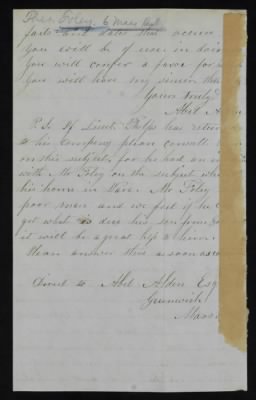 facts and dates that occur
You will be of use in doin
You will confer a favor for
you will have my sincere tha
Yours truly
Abel Al
P.S. If Lieut. Phelps has return
to his Company please consult
on this subject, for he had an in
with Mr Foley on the subject wh
his home in Ware. Mr Foley
poor man and we feel if he c
get what is due his son from
it will be a great help to him.
Please answer this as soon as
Direct to Abel Alden Esq
Greenwich
Mass